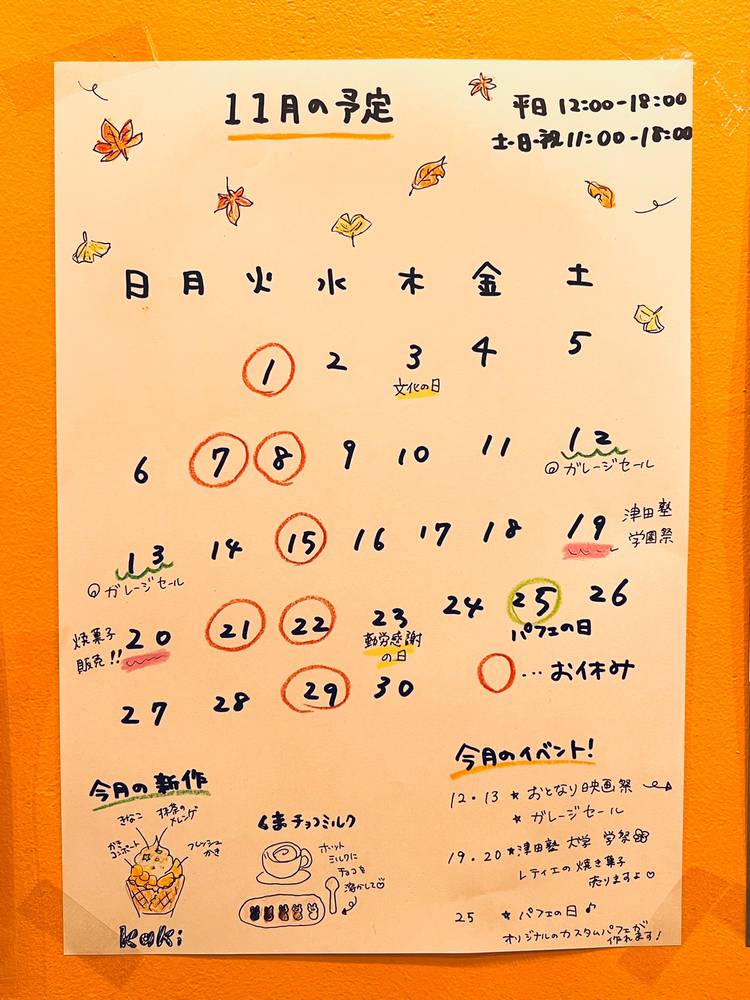 11月の予定
平日 12:00-18:00
土・日・祝 11:00-18:00
日 月 火 水 木 金 土
1 2 3 4 5
文化の日
6 7 8 9 10 11 12
@ガレージセール
13 14 15 16 17 18 19
@ガレージセール
津田塾
学園祭
20 21 22 23 24 25 26
焼菓子
販売!!
勤労感謝
の日
パフェの日
27 28 29 30
○…お休み
今月の新作
きなこ
抹茶の
メレンゲ
かき
コンポート
フレッシュ
かき
kaki
くまチョコミルク
ホット
ミルクに
チョコを
溶かして♡
今月のイベント!
12.13 ★おとなり映画祭
★ガレージセール
19.20 ★津田塾大学 学祭
レティエの焼き菓子
売りますよ♡
25 ★パフェの日♪
オリジナルのカスタムパフェが
作れます!